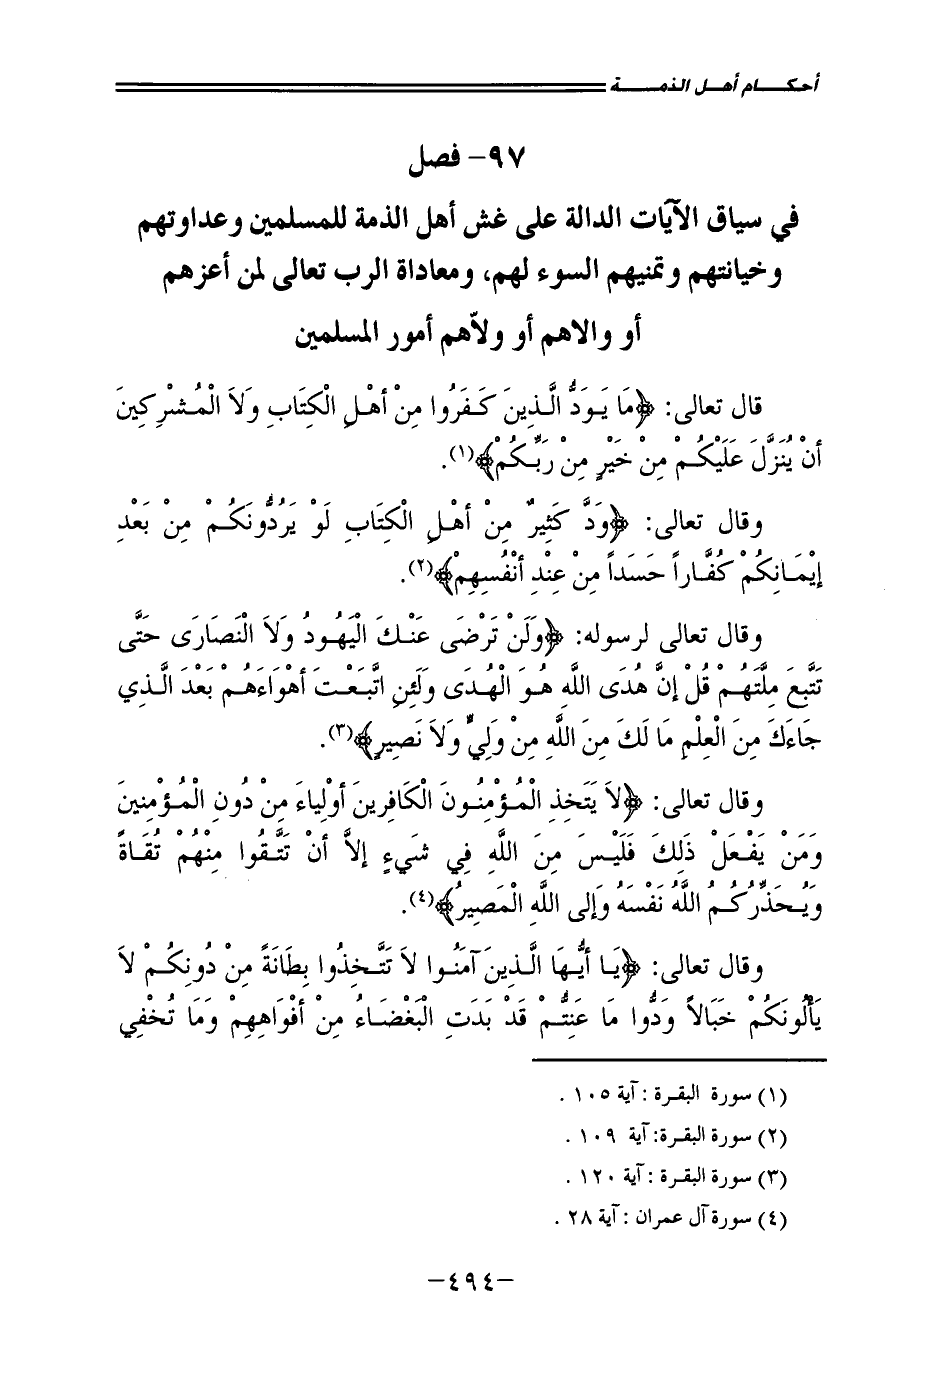 أحكـــام أهـل الذمـــة
٩٧- فصل
في سياق الآيات الدالة على غش أهل الذمة للمسلمين وعداوتهم
وخيانتهم وتمنيهم السوء لهم، ومعاداة الرب تعالى لمن أعزهم
أو والاهم أو ولاّهم أمور المسلمين
قال تعالى: ﴿مَا يَوَدُّ الَّذِينَ كَفَرُوا مِنْ أَهْلِ الْكِتَابِ وَلاَ الْمُشْرِكِينَ
أَنْ يُنَزَّلَ عَلَيْكُمْ مِنْ خَيْرٍ مِنْ رَبِّكُمْ﴾(١).
وقال تعالى: ﴿وَدَّ كَثِيرٌ مِنْ أَهْلِ الْكِتَابِ لَوْ يَرُدُّونَكُمْ مِنْ بَعْدِ
إِيْمَانِكُمْ كُفَّاراً حَسَداً مِنْ عِنْدِ أَنْفُسِهِمْ﴾(٢).
وقال تعالى لرسوله: ﴿وَلَنْ تَرْضَى عَنْكَ الْيَهُودُ وَلاَ الْنَصَارَى حَتَّى
تَتَّبِعَ مِلَّتَهُمْ قُلْ إِنَّ هُدَى اللَّهِ هُوَ الْهُدَى وَلَئِنِ اتَّبَعْتَ أَهْوَاءَهُمْ بَعْدَ الَّذِي
جَاءَكَ مِنَ الْعِلْمِ مَا لَكَ مِنَ اللَّهِ مِنْ وَلِيٍّ وَلاَ نَصِيرٍ﴾(٣).
وقال تعالى: ﴿لاَ يَتَخِذِ الْمُؤْمِنُونَ الْكَافِرِينَ أَوْلِيَاءَ مِنْ دُونِ الْمُؤْمِنِينَ
وَمَنْ يَفْعَلْ ذَلِكَ فَلَيْسَ مِنَ اللَّهِ فِي شَيْءٍ إِلاَّ أَنْ تَتَّقُوا مِنْهُمْ تُقَاةً
وَيُحَذِّرُكُمُ اللَّهُ نَفْسَهُ وَإِلَى اللَّهِ الْمَصِيرُ﴾(٤).
وقال تعالى: ﴿يَا أَيُّهَا الَّذِينَ آمَنُوا لاَ تَتَّخِذُوا بِطَانَةً مِنْ دُونِكُمْ لاَ
يَأْلُونَكُمْ خَبَالاً وَدُّوا مَا عَنِتُّمْ قَدْ بَدَتِ الْبَغْضَاءُ مِنْ أَفْوَاهِهِمْ وَمَا تُخْفِي
(١) سورة البقرة : آية ١٠٥ .
(٢) سورة البقرة: آية ١٠٩ .
(٣) سورة البقرة : آية ١٢٠ .
(٤) سورة آل عمران : آية ٢٨ .
-٤٩٤-